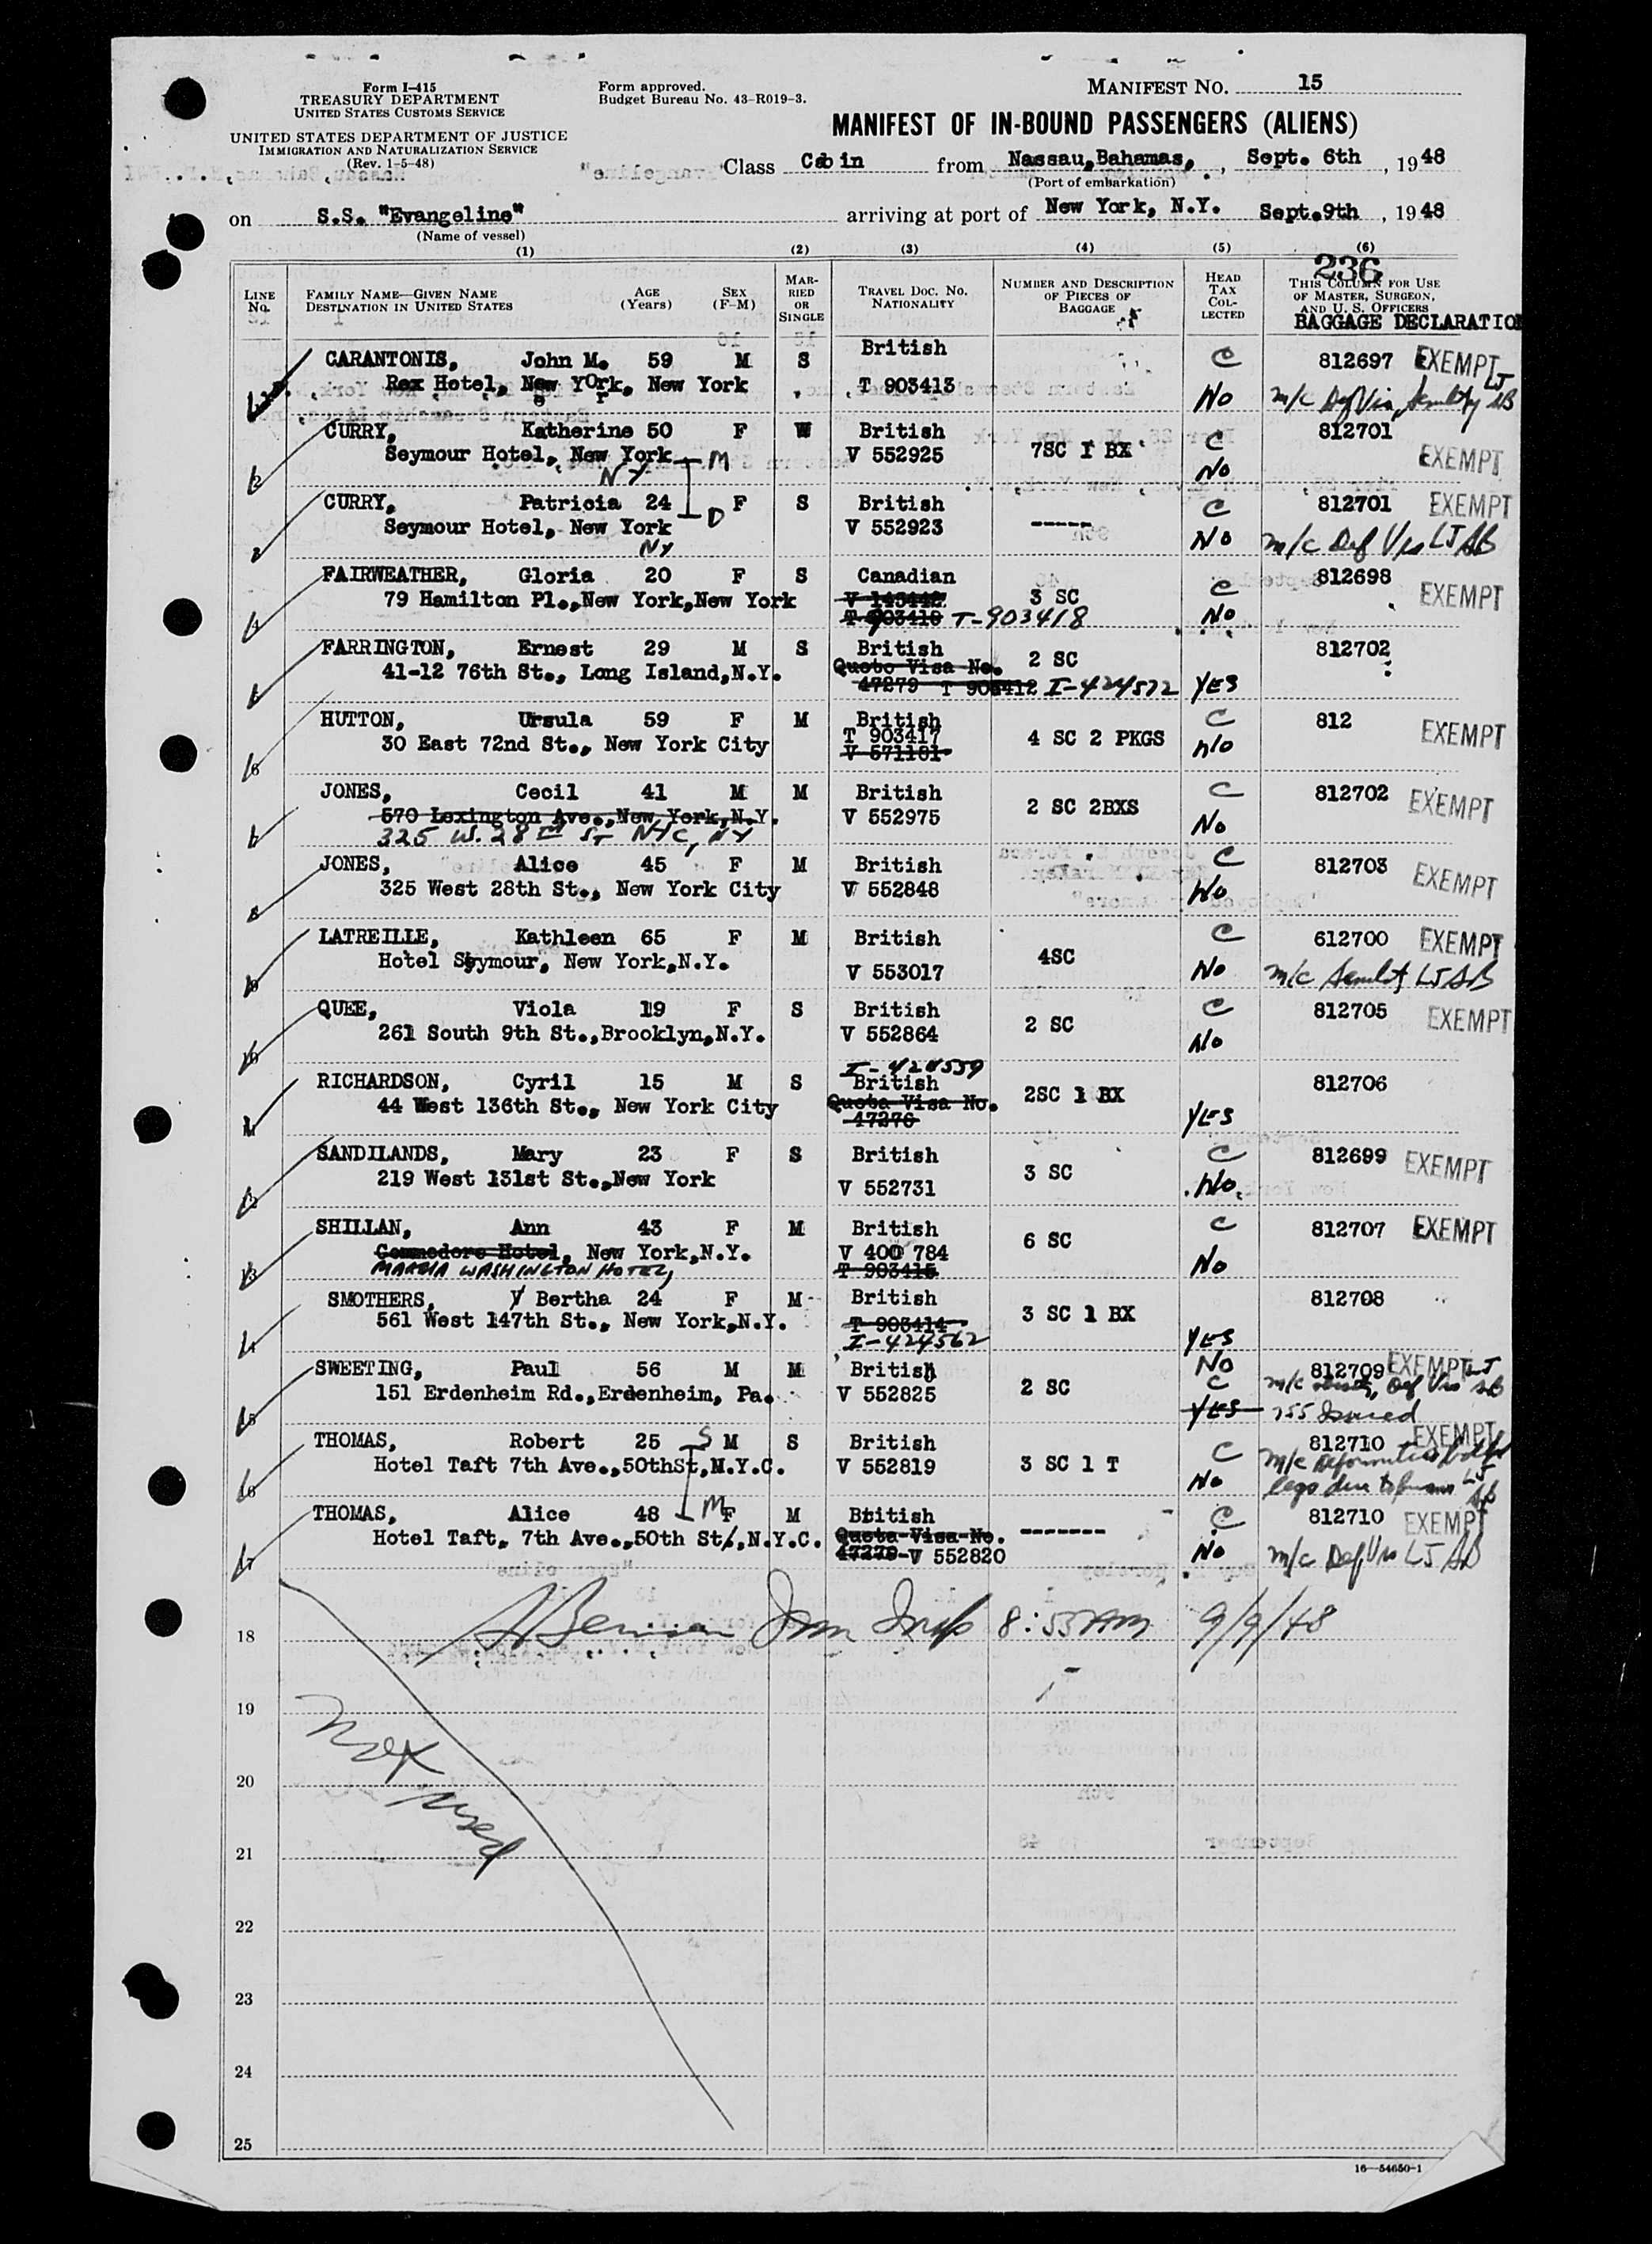 Form I-415
TREASURY DEPARTMENT
UNITED STATES CUSTOMS SERVICE
UNITED STATES DEPARTMENT OF JUSTICE
IMMIGRATION AND NATURALIZATION SERVICE
(Rev. 1-5-48)
Form approved.
Budget Bureau No. 43-R019-3.
MANIFEST NO. 15
MANIFEST OF IN-BOUND PASSENGERS (ALIENS)
Class Cabin from Nassau, Bahamas, , Sept. 6th , 1948
(Port of embarkation)
on S.S. "Evangeline" arriving at port of New York, N.Y. Sept.9th , 1948
(Name of vessel)
(1) (2) (3) (4) (5) (6)
236
LINE No. FAMILY NAME—GIVEN NAME DESTINATION IN UNITED STATES AGE (Years) SEX (F-M) MARRIED OR SINGLE TRAVEL DOC. NO. NATIONALITY NUMBER AND DESCRIPTION OF PIECES OF BAGGAGE HEAD TAX COLLECTED THIS COLUMN FOR USE OF MASTER, SURGEON, AND U. S. OFFICERS
BAGGAGE DECLARATION
CARANTONIS, John M. 59 M S British C 812697 EXEMPT LJ
Rex Hotel, New York, New York T 903413 No m/c Def Vis, Senility AB
2 CURRY, Katherine 50 F W British 7SC 1 BX C 812701
Seymour Hotel, New York M V 552925 No EXEMPT
NY
CURRY, Patricia 24 D F S British ----- C 812701 EXEMPT
Seymour Hotel, New York V 552923 No m/c Def Vis LJ AB
NY
4 FAIRWEATHER, Gloria 20 F S Canadian 3 SC C 812698 EXEMPT
79 Hamilton Pl.,New York,New York V 143442 No
T 903418 T-903418
FARRINGTON, Ernest 29 M S British 2 SC 812702
41-12 76th St., Long Island,N.Y. Quoto Visa No.
47279 T 903412 I-424572 YES
6 HUTTON, Ursula 59 F M British 4 SC 2 PKGS C 812 EXEMPT
30 East 72nd St., New York City T 903417 No
V 571181
JONES, Cecil 41 M M British 2 SC 2BXS C 812702 EXEMPT
570 Lexington Ave.,New York,N.Y. V 552975 No
325 W. 28th ST NYC, NY
JONES, Alice 45 F M British C 812703 EXEMPT
325 West 28th St., New York City V 552848 No
9 LATREILLE, Kathleen 65 F M British 4SC C 612700 EXEMPT
Hotel Seymour, New York,N.Y. V 553017 No m/c Senility LJ AB
10 QUEE, Viola 19 F S British 2 SC C 812705 EXEMPT
261 South 9th St.,Brooklyn,N.Y. V 552864 No
I-424559
RICHARDSON, Cyril 15 M S British 2SC 1 BX 812706
44 West 136th St., New York City Quota Visa No. YES
47276
SANDILANDS, Mary 23 F S British 3 SC C 812699 EXEMPT
219 West 131st St.,New York V 552731 No
13 SHILLAN, Ann 43 F M British 6 SC C 812707 EXEMPT
Commodore Hotel, New York,N.Y. V 400 784 No
MARTHA WASHINGTON HOTEL, T 903415
14 SMOTHERS, V Bertha 24 F M British 3 SC 1 BX 812708
561 West 147th St., New York,N.Y. T 903414
I-424562 YES
15 SWEETING, Paul 56 M M British 2 SC No 812709 EXEMPT LJ
151 Erdenheim Rd.,Erdenheim, Pa. V 552825 C m/c Def Vis AB
YES 755 Issued
16 THOMAS, Robert 25 S M S British 3 SC 1 T C 812710 EXEMPT
Hotel Taft 7th Ave.,50thSt,N.Y.C. V 552819 No m/c Deformities both legs due to LJ AB
17 THOMAS, Alice 48 M F M British ------- C 812710 EXEMPT
Hotel Taft, 7th Ave.,50th St/,N.Y.C. Quota Visa No. No m/c Def Vis LJ AB
47278-V 552820
Imm Insp 8:55 AM 9/9/48
18
19
Not used
20
21
22
23
24
25
16—54650-1